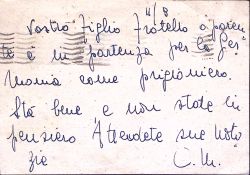 11/8
Vostro figlio fratello o paren
te è in partenza per la ger
mania come prigioniero.
Sta bene e non state in
pensiero Attendete sue noti
zie C. M.